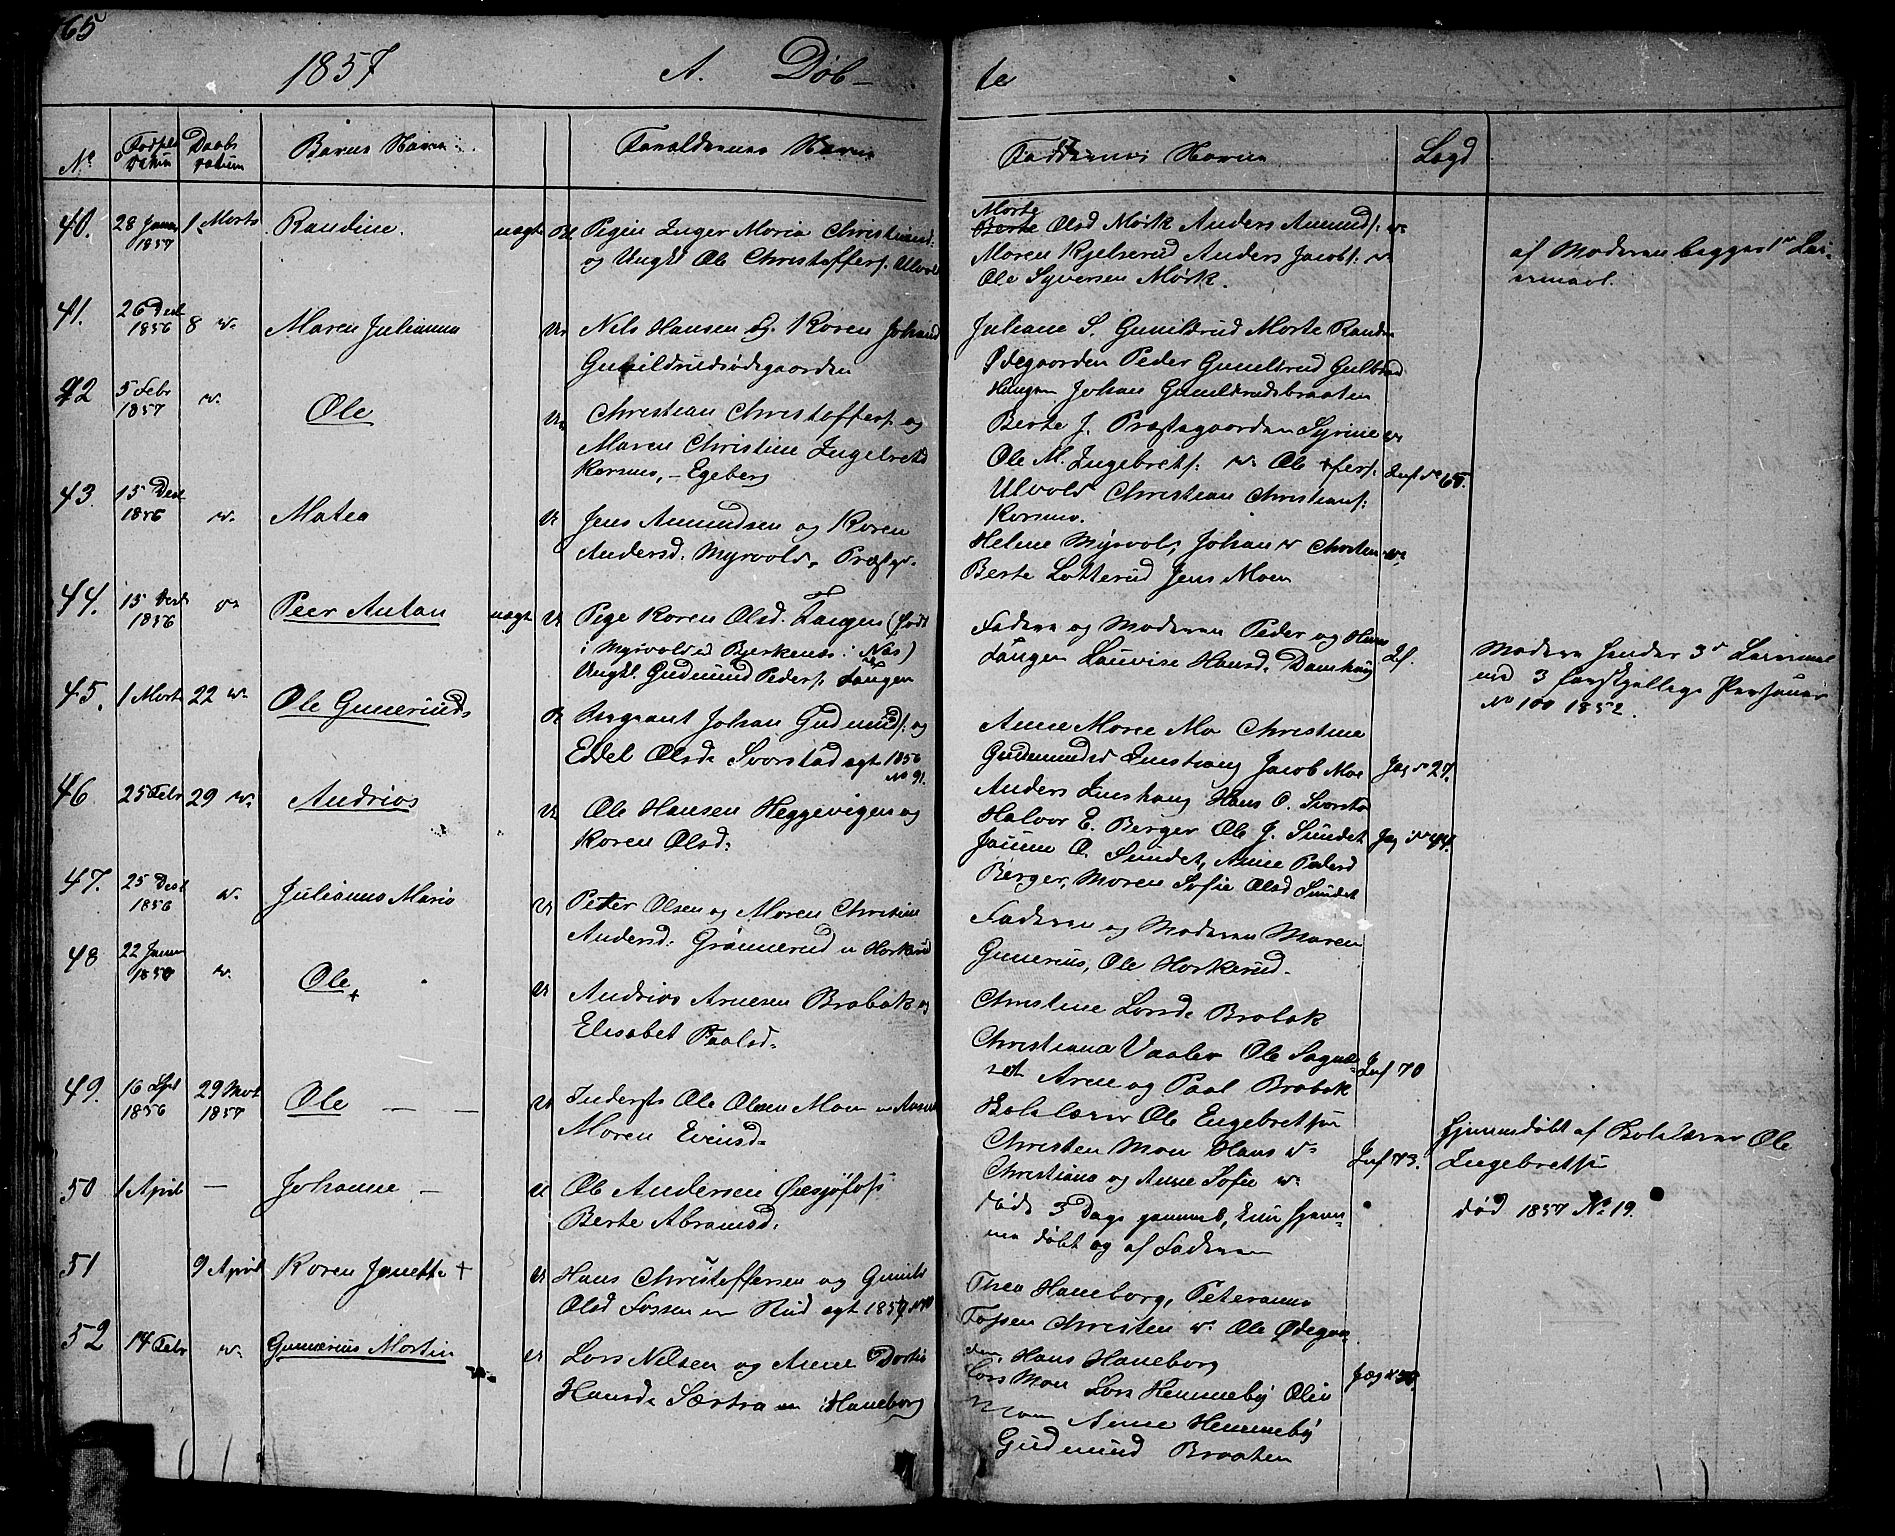 65
1857 A. Døb- te
No Fødsels Datum Daabs Datum Barns Navn Forældrenes Navne Faddernes Navne Lægd
40. 28 Januar 1857 1 Marts Randine. uægte Pigen Inger Maria Christiansd.
og Ungk. Ole Christoffers. Ulvold
Marte
Berte Olsd Mørk Anders Amunds.
Maren Kjelserud Anders Jacobs.
Ole Syversen Mørk.
af Moderen begges 1ste Leiermaal.
41. 26 Dec 1856 8 Maren Julianna Nels Hansen og Karen Johansd
Gunildrudsødegaarden
Juliane S. Gunildrud Marte Rand
Ødegaarden Peder Gunildrud Gulbrand
Haugen Johan Gunildrudsbraaten
42 5 Febr 1857 Ole Christian Christoffers. og
Maren Christine Ingebretsd
Korsmo, - Egeberg
Berte J. Præstegaarden Syrine
Ole M. Ingebrets. Ole fers.
Ulvold Christian Christians.
Korsmo.
Inf No 65.
43. 15 Dec 1856 Matea Jens Amundsen og Karen
Andersd. Myrvold, Præstg.
Helene Myrvold, Johan Christen
Berte Lotterud Jens Moen
44. 15 Dec 1856 Peer Anton uægte Pige Karen Olsd. Tangen (født
i Myrvold Bjerkenæs i Næs)
Ungk. Gudmund Peders. Tangen
Faderen og Moderen Peder og Hans
Tangen Lauvise Hansd. Damhaug
Inf.
Moderen hendes 3die Leiermaal
med 3 forskjellige Personer
No 100 1852.
45. 1 Marts 22 Ole Gunerius Sergeant Johan Gudmunds. og
Eddel Olsd. Svorstad ægt. 1856
No 91.
Anne Marie Mo Christine
Gudmundsd Linshaug Jacob Moe
Anders Linshaug Hans O. Svorsta
Jag No 27.
46 25 Febr 29 Andrias Ole Hansen Heggevigen og
Karen Olsd.
Halvor E. Berger Ole J. Sundet
O. Sundet, Anne Pedersd
Berger, Maren Sofie Olsd Sundet
Jag No 44.
47. 25 Dec 1856 Julianus Maria Peter Olsen og Maren Christine
Andersd. Grønnerud Horkerud
Faderen og Moderen Maren
Gunerius, Ole Horkerud.
48 22 Januar Ole + Andrias Arnesen Brobak og
Elisabet Paalsd.
Christine Larsd. Brobak
Christiana Vaaler Ole Sagne
set Arne og Paal Brobak
Inf 70
49. 16 Sept 1856 29 Mart 1857 Ole Inderst Ole Olsen Moen
Maren Evensd.
Ole Engebretsen
Christen Moen Hans
Christiana og Anne Sofie
Inf 73.
hjemmedøbt af Ole
Ingebretsen
50 1 April - Johanne - Ole Andersen Øiesjøfoss
Berte Abramsd.
død 3 Dage gammel, kun hjem-
me døbt og af Faderen
død 1857 No 19.
51 9 April Karen Jenette + Hans Christoffersen og Gunild
Olsd Fossen Rud ægt 1857
Thea Haneborg, Peteranna
Fossen Christen Ole Ødegaar
den, Hans Haneborg
52 14 Febr Gunerius Martin Lars Nilsen og Anne Dortea
Hansd. Sætra Haneborg
Lars Moen Lars Hemneby Olin
Moen Anne Hemneby
Gudmund Braaten
Jag